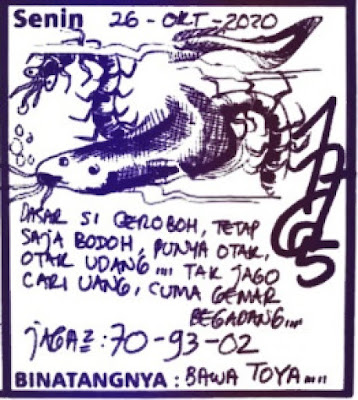 Senin 26 - OKT - 2020
DASAR SI CEROBOH, TETAP
SAJA BODOH, PUNYA OTAK,
OTAK UDANG.... TAK JAGO
CARI UANG, CUMA GEMAR
BEGADANG....
JAGA2 : 70-93-02
BINATANGNYA : BAWA TOYA.....